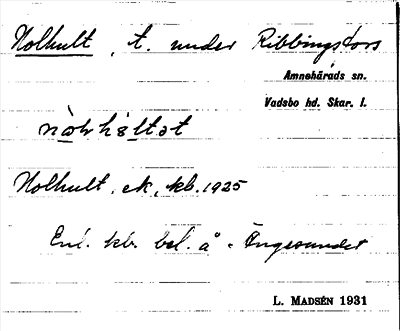 Nolhult, t. under Ribbingsfors
Amnehärads sn.
Vadsbo hd. Skar. l.
Nolhult, ek, kb. 1925
Enl. kb. bel. å Ängesundet
L. MADSÉN 1931